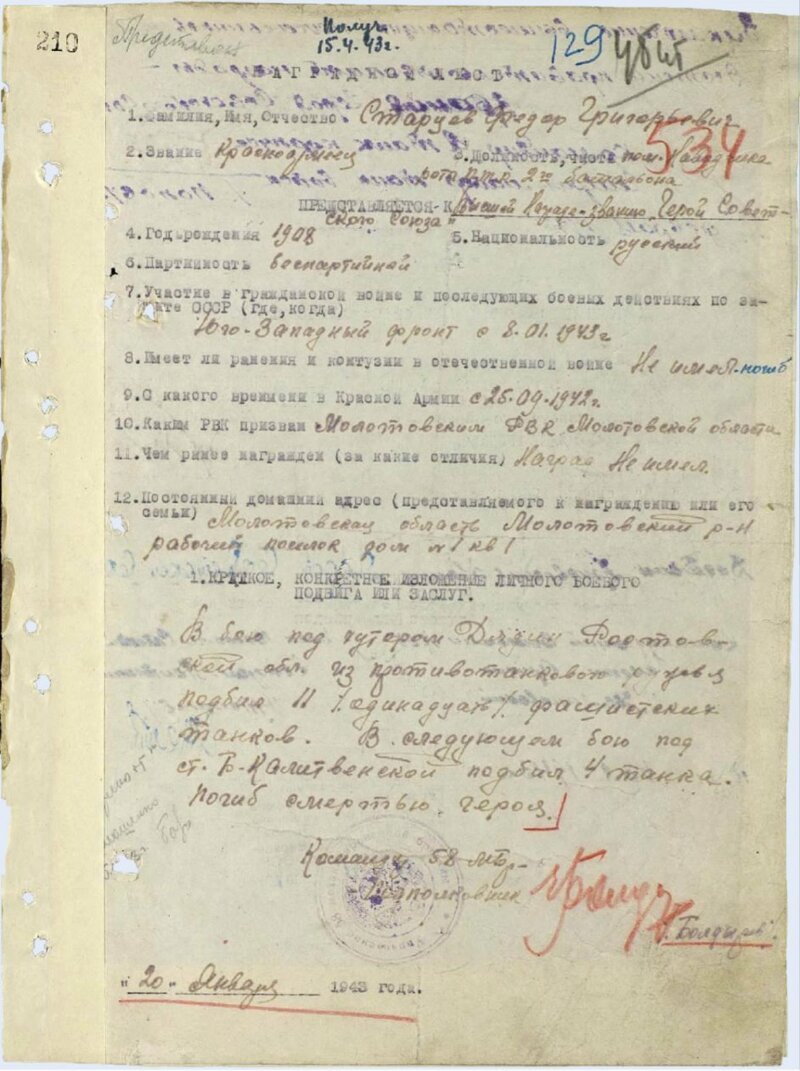 210
Получ
15.4.43г.
129
убит
НАГРАДНОЙ ЛИСТ
534
1. Фамилия, Имя, Отчество Старцев Федор Григорьевич
2. Звание Красноармеец 3. Должность, часть пом. наводчика
рота ПТР 2го батальона
ПРЕДСТАВЛЯЕТСЯ К высшей награде-званию "Герой Совет-
ского Союза"
4. Год рождения 1908 5. Национальность русский
6. Партийность беспартийной
7. Участие в гражданской войне и последующих боевых действиях по за-
щите СССР (Где, когда)
Юго-Западный фронт с 8.01.1943г.
8. Имеет ли ранения и контузии в отечественной войне Не имел-погиб
9. С какого времени в Красной Армии с 25.09.1942г.
10. Каким РВК призван Молотовским РВК Молотовской области
11. Чем ранее награжден (за какие отличия) Наград Не имел.
12. Постоянный домашний адрес (представляемого к награждению или его
семьи) Молотовская область Молотовский р-н
рабочий поселок дом №1 кв 1
1. КРАТКОЕ, КОНКРЕТНОЕ ИЗЛОЖЕНИЕ ЛИЧНОГО БОЕВОГО
ПОДВИГА ИЛИ ЗАСЛУГ.
В бою под хутором Ростов-
ской обл. из противотанкового ружья
подбил 11 /одинадцать/ фашистских
танков. В следующем бою под
ст. Б-Калитвенской подбил 4 танка.
Погиб смертью героя.
Командир 58 мбр-
Подполковник
/Болдырев/.
"20" Января 1943 года.